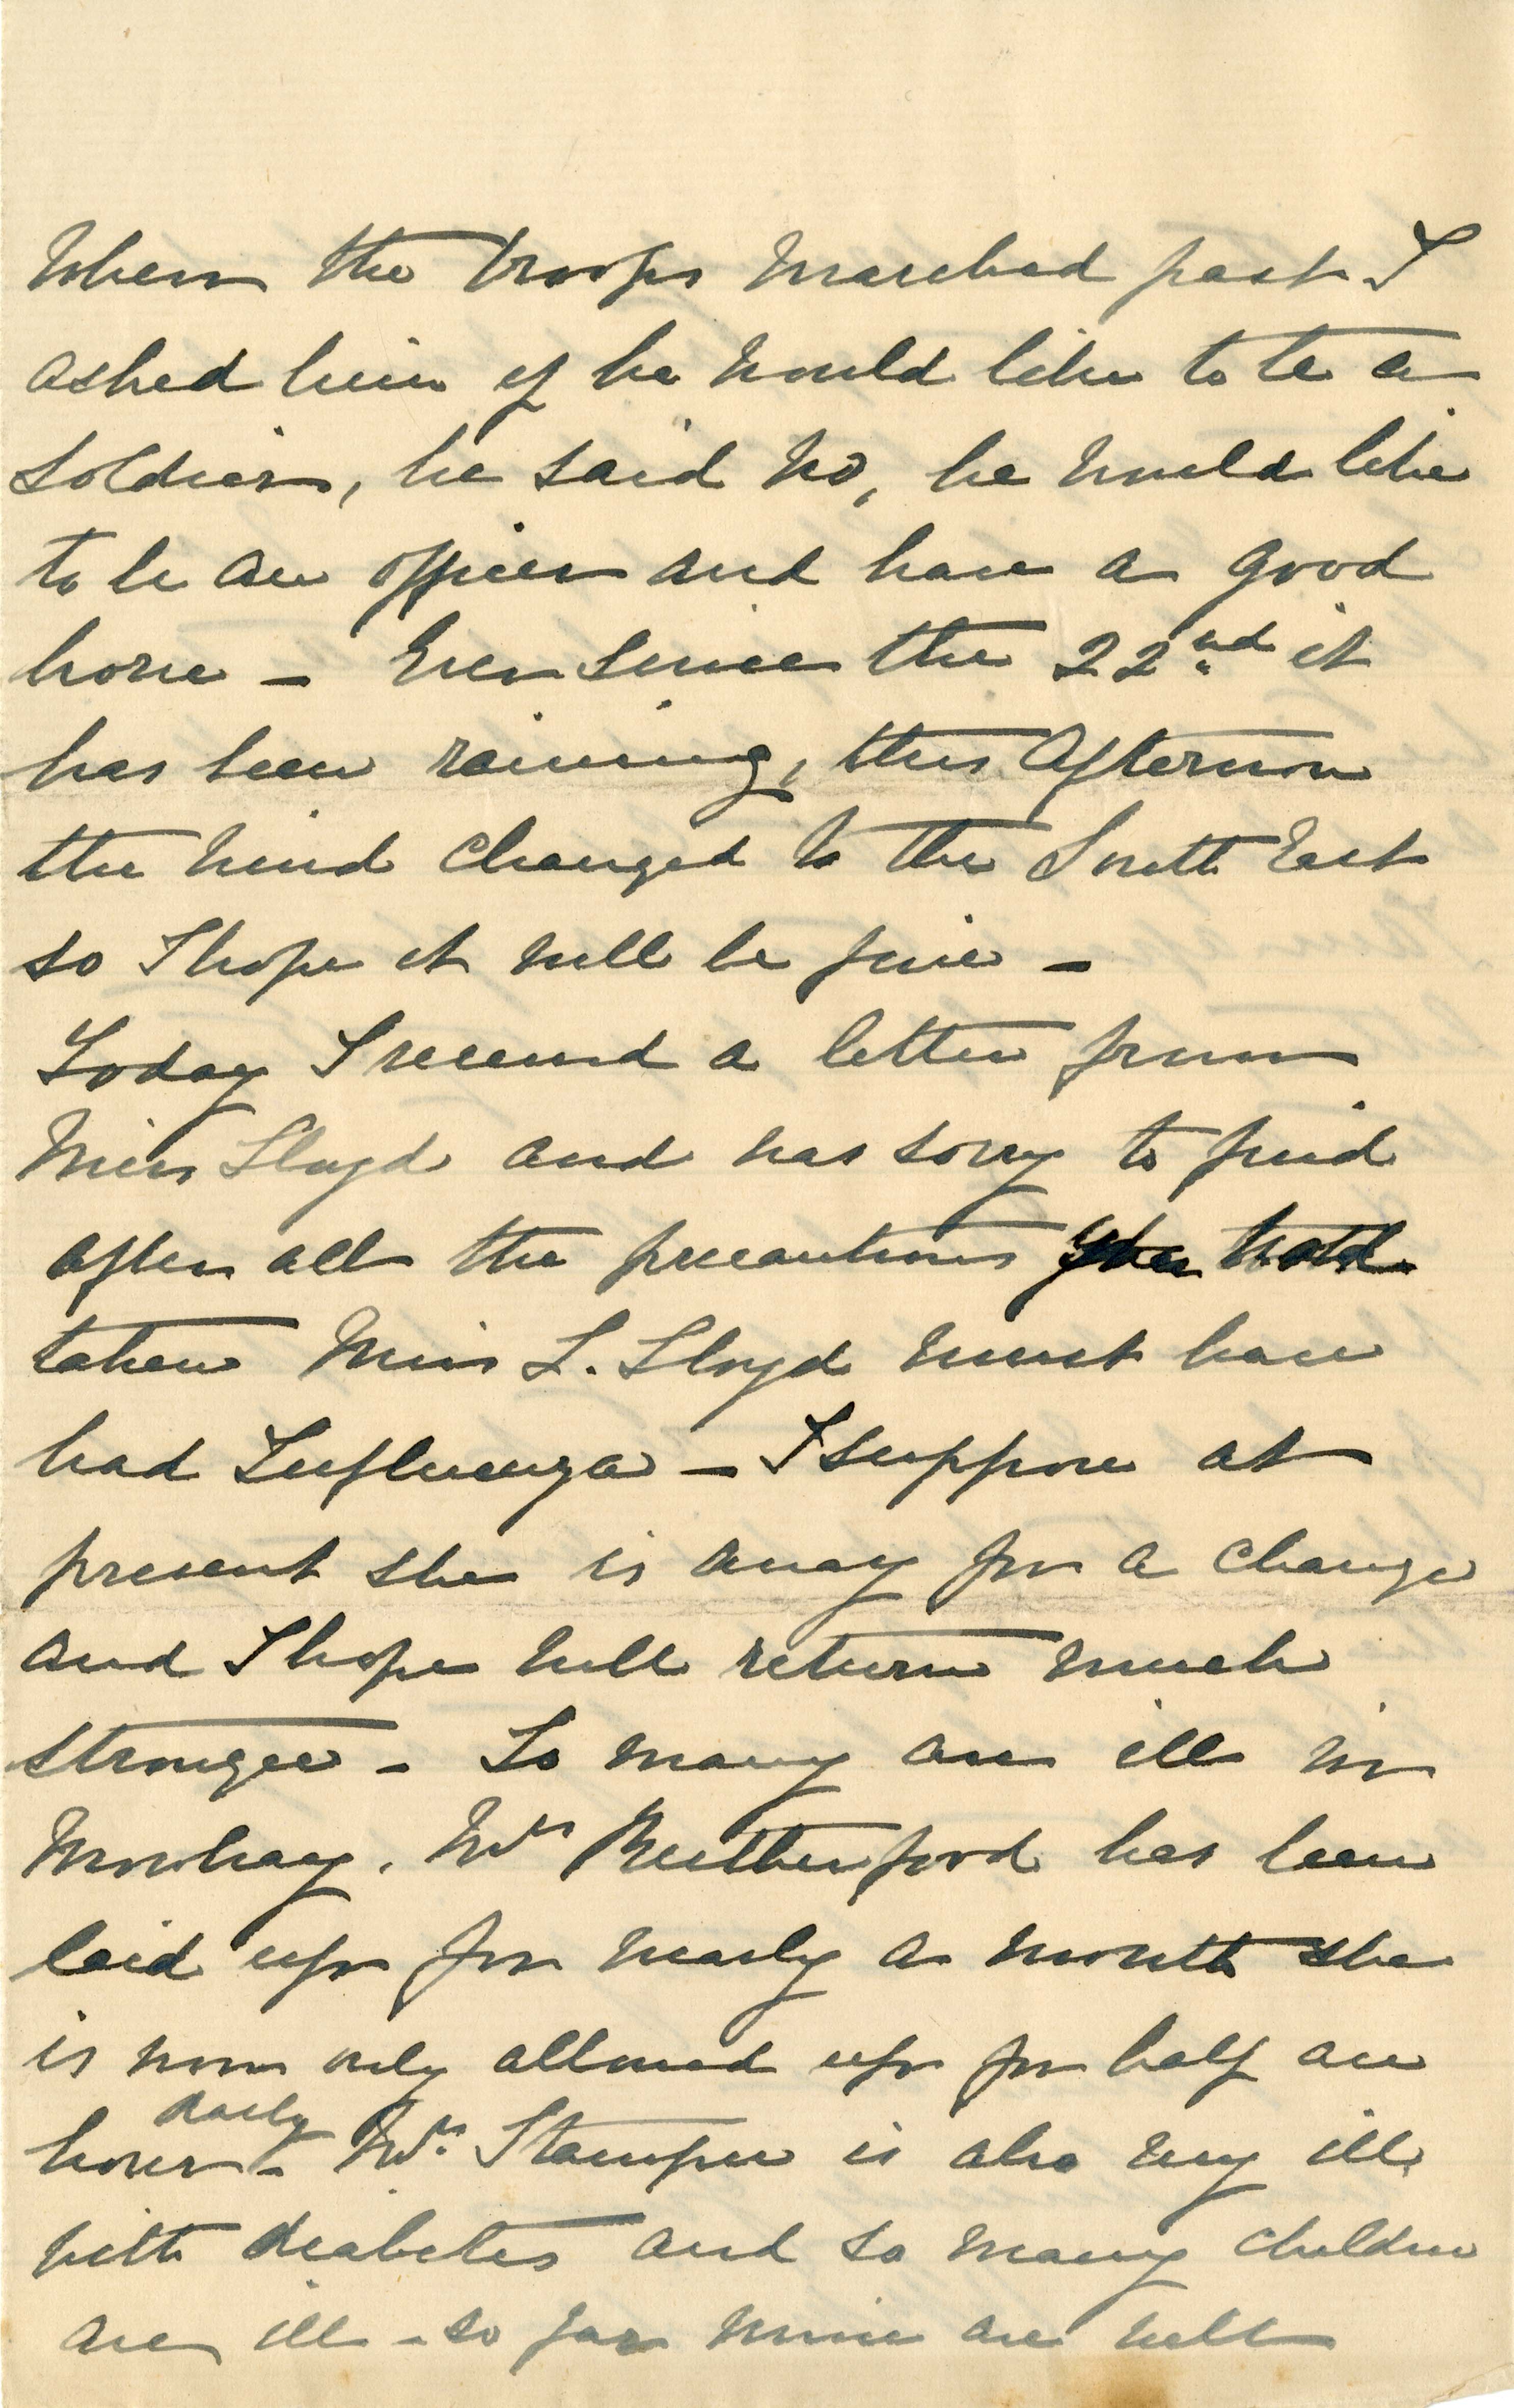 When the troops marched past I
asked him if he would like to be a
soldier, he said no, he would like
to be an officer and have a good
horse – Ever since the 22nd it
has been raining, this afternoon
the wind changed to the South East
so I hope it will be fine –
Today I received a letter from
Miss Lloyd and was sorry to find
after all the precautions you had
taken Miss L. Lloyd must have
had Influenza – I suppose at
present she is away for a change
and I hope will return much
stronger – So many are ill in
Mowbray. Mrs Rutherfoord has been
laid up for nearly a month she
is now only allowed up for half an
hour daily – Mrs Stamper is also very ill
with diabetes and so many children
are ill – so far mine are well